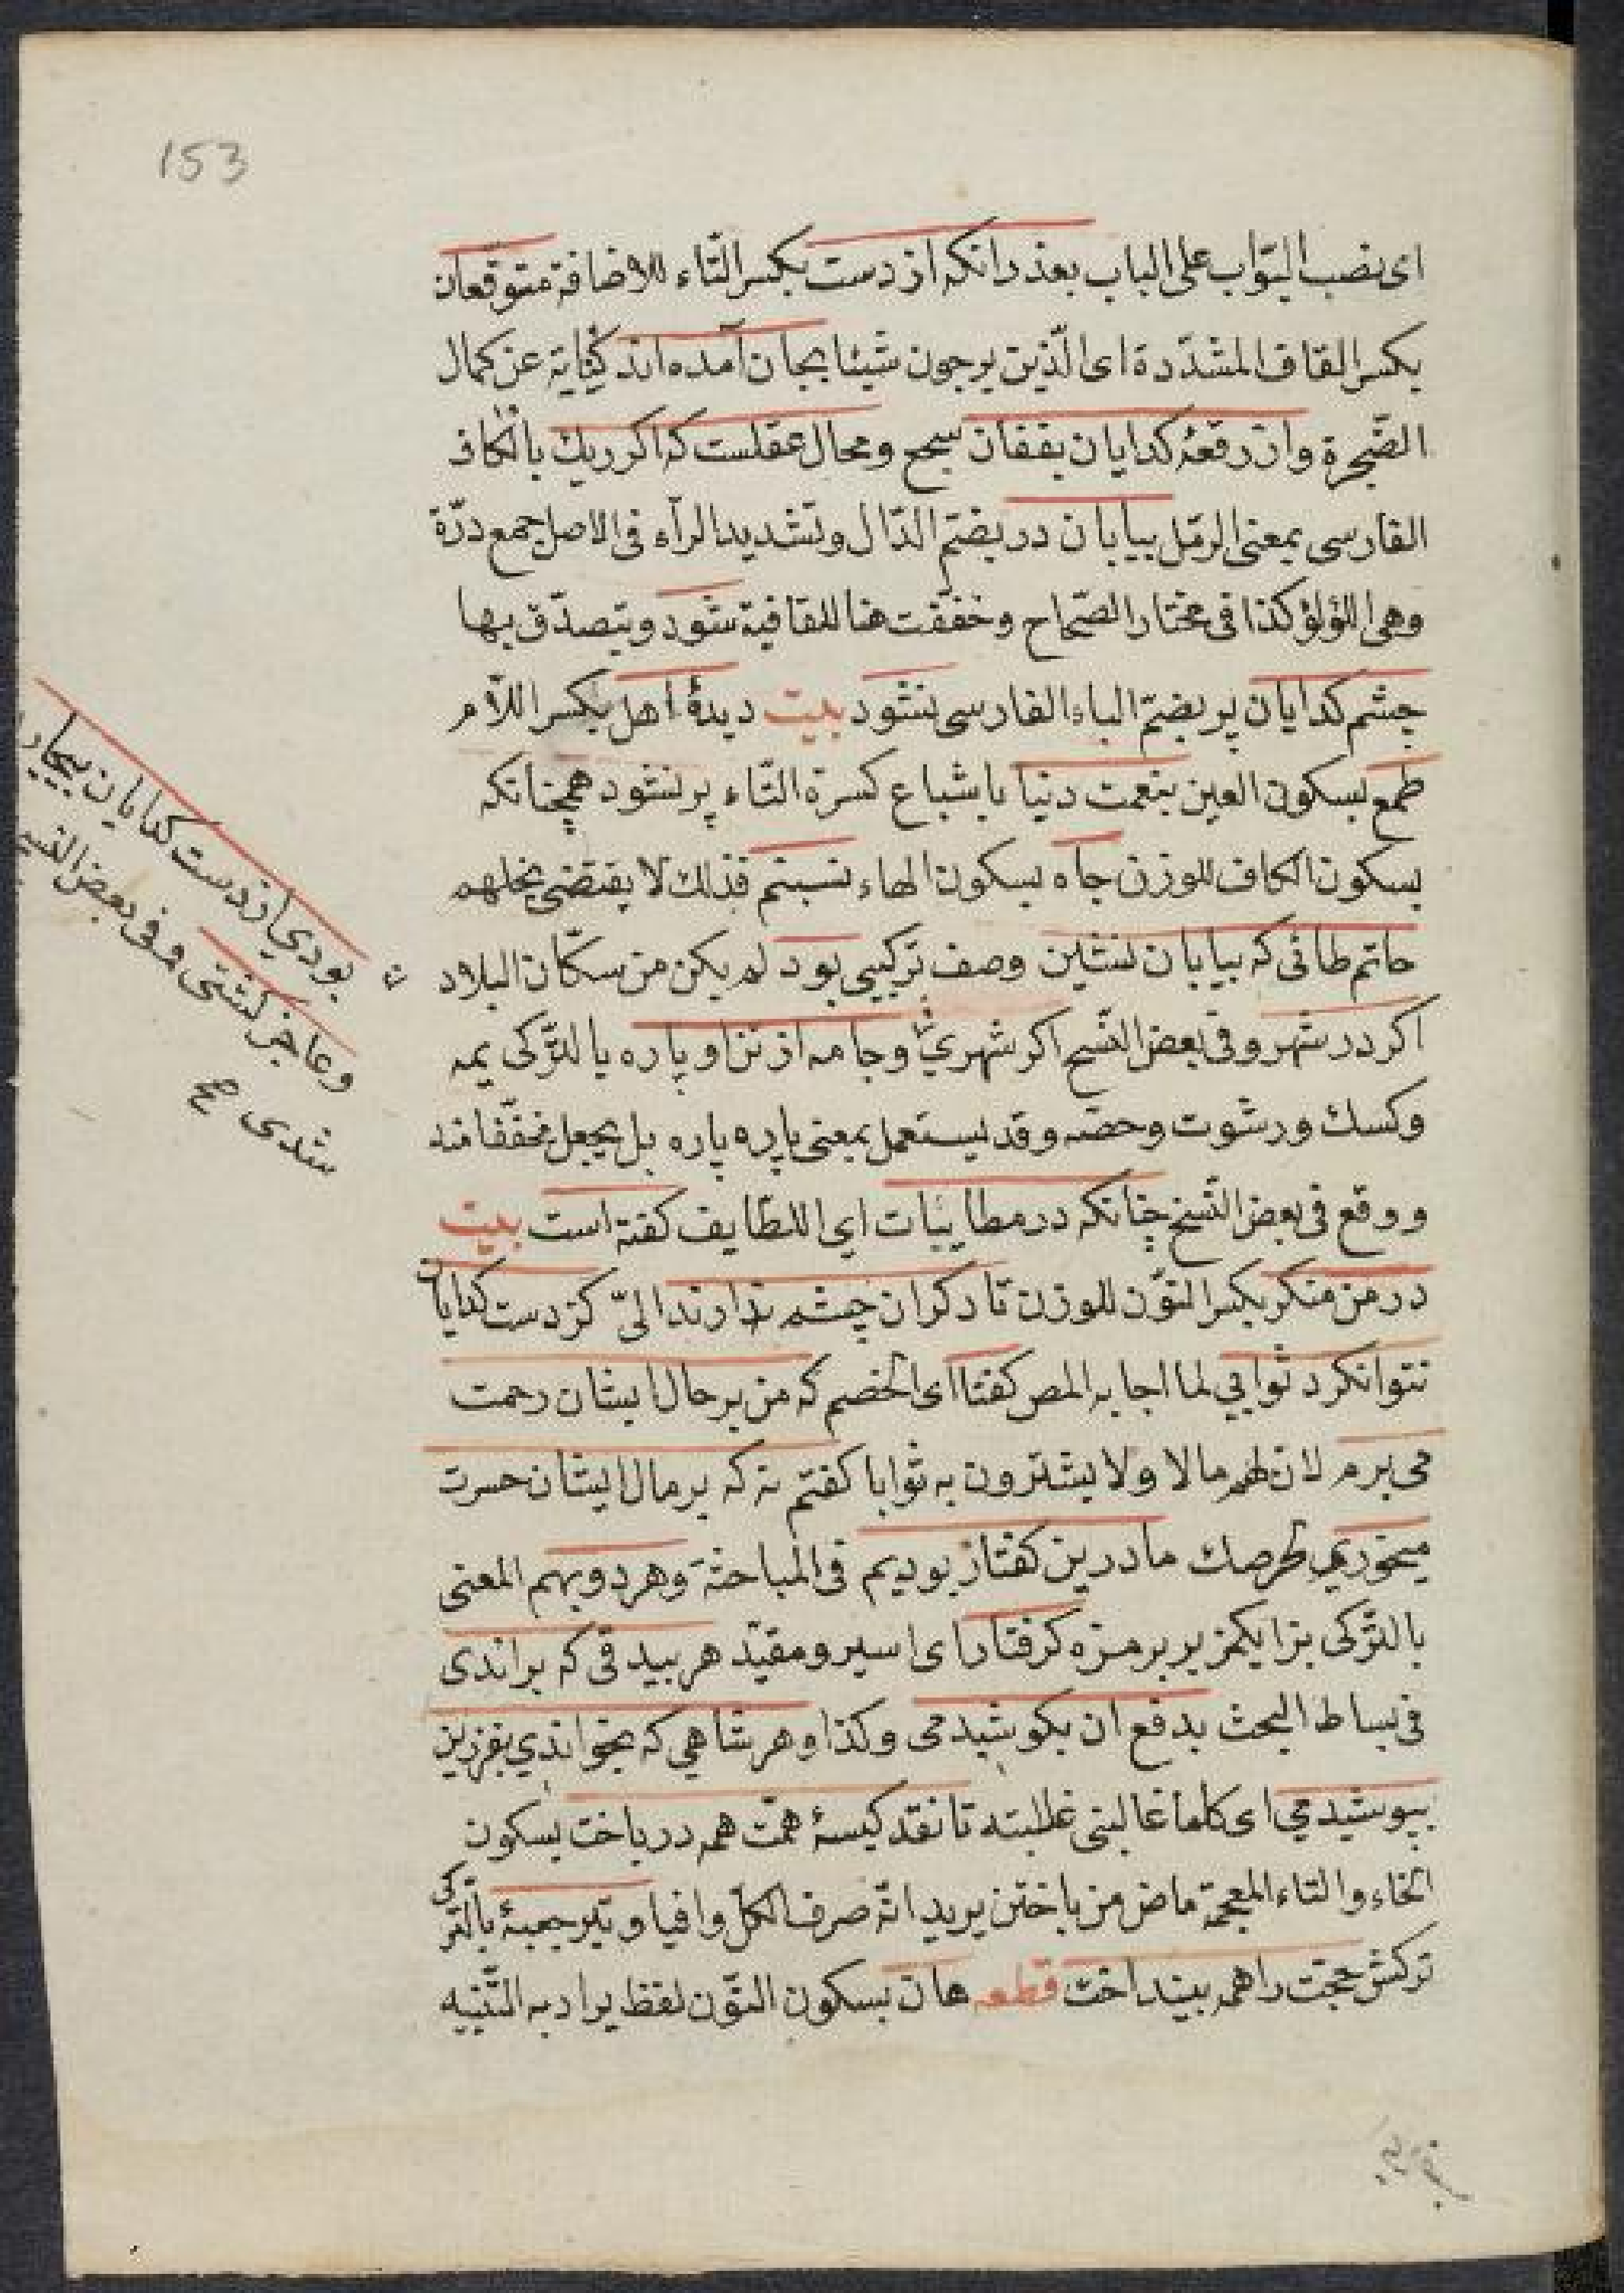 153
اى نصب البّواب على الباب بعذر انكه از دست بكسر التّاء للاضافة متوقّعان
بكسر القاف المشدّدة اى الّذين يرجون شيئا بجان آمده اند كناية عن كمال
الضّجرة واز رقعۀ كدايان بفغان سجح ومحال عقلست كه اكر ريك بالكاف
الفارسى بمعنى الرّمل بيابان در بضمّ الدّال وتشديد الرّاء فى الاصل جمع درّة
وهى اللؤلؤ كذا فى مختار الصّحاح وخفّفت هنا للقافية شود ويتصدّق بها
چشم كدايان پر بضمّ الباء الفارسى نشود بيت ديدۀ اهل بكسر اللّام
طمع بسكون العين بنعمت دنيا باشباع كسرة التّاء پر نشود همچنانكه
بسكون الكاف للوزن چاه بسكون الهاء بشبنم فذلك لا يقتضى بخلهم
حاتم طائى كه بيابان نشين وصف تركيبى بود لم يكن من سكّان البلاد
اكر در شهر وفى بعض النّسخ اكر شهرى وجامه از تن او پاره بالتّركى يمه
وكسك ورشوت وحصه وقد يستعمل بمعنى پاره پاره بل يجعل مخفّفا منه
ووقع فى بعض النّسخ چنانكه در مطايبات اى اللطايف كفته است بيت
در من منكر بكسر النّون للوزن تا دكران چشم ندارند الىّ كز دست كدايان
نتوان كرد ثوابى لما اجابه المص كفتا اى الخصم كه من بر حال ايشان رحمت
مى برم لان لهم مالا ولا يشترون به ثوابا كفتم نه كه بر مال ايشان حسرت
ميخورى لحرصك ما درين كفتار بوديم فى المباحثة وهر دو بهم المعنى
بالتّركى بز ايكمز بر برمزه كرفتار اى اسير ومقيّد هر بيدقى كه براندى
فى بساط البحث بدفع ان بكوشيدمى وكذا وهر شاهى كه بخواندى بفرزين
بپوشيدمى اى كلما غالبنى غلبته تا نقد كيسۀ همّت همه در باخت بسكون
الخاء والتاء المعجمة ماض من باختن يريد انّه صرف الكلّ وافيا وتير جعبۀ بالتّركى
تركش حجّت را همه بينداخت قطعه هان بسكون النّون لفظ يراد به التّنبيه
بودى از دست كدايان بيچار
وعاجز كشتى وفى بعض النسخ
شدى صح